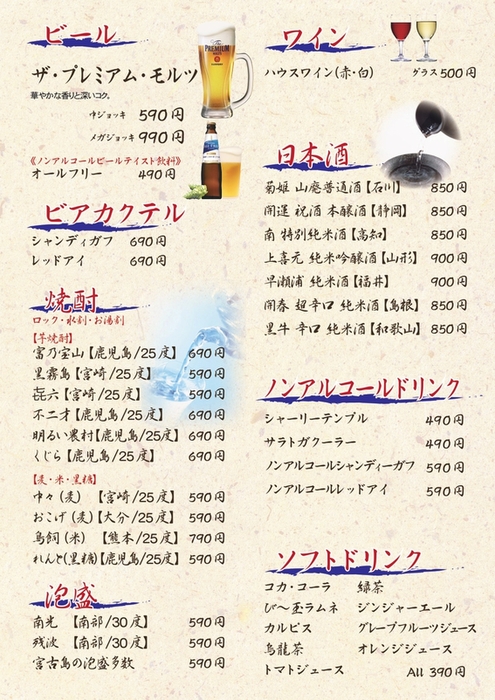 ビール
ザ・プレミアム・モルツ
華やかな香りと深いコク。
中ジョッキ 590円
メガジョッキ 990円
《ノンアルコールビールテイスト飲料》
オールフリー 490円
ビアカクテル
シャンディガフ 690円
レッドアイ 690円
焼酎
ロック・水割・お湯割
【芋焼酎】
富乃宝山【鹿児島/25度】 690円
黒霧島【宮崎/25度】 590円
㐂六【宮崎/25度】 590円
不二才【鹿児島/25度】 690円
明るい農村【鹿児島/25度】 690円
くじら【鹿児島/25度】 690円
【麦・米・黒糖】
中々(麦)【宮崎/25度】 590円
おこげ(麦)【大分/25度】 590円
鳥飼(米)【熊本/25度】 790円
れんと(黒糖)【鹿児島/25度】 590円
泡盛
南光【南部/30度】 590円
残波【南部/30度】 590円
宮古島の泡盛多数 590円
ワイン
ハウスワイン(赤・白) グラス500円
日本酒
菊姫 山廃普通酒【石川】 850円
開運 祝酒 本醸酒【静岡】 850円
南 特別純米酒【高知】 850円
上喜元 純米吟醸酒【山形】 900円
早瀬浦 純米酒【福井】 900円
開春 超辛口 純米酒【島根】 850円
黒牛 辛口 純米酒【和歌山】 850円
ノンアルコールドリンク
シャーリーテンプル 490円
サラトガクーラー 490円
ノンアルコールシャンディーガフ 590円
ノンアルコールレッドアイ 590円
ソフトドリンク
コカ・コーラ 緑茶
び〜玉ラムネ ジンジャーエール
カルピス グレープフルーツジュース
烏龍茶 オレンジジュース
トマトジュース All 390円
The PREMIUM